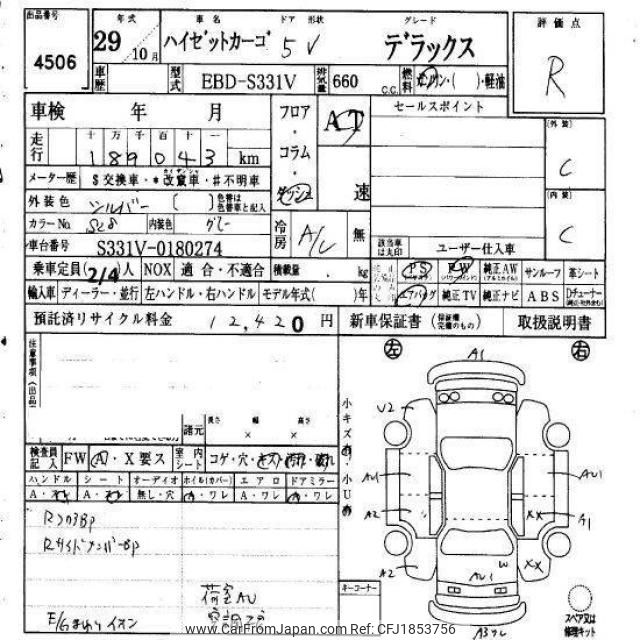 出品番号 年式 車名 ドア 形状 グレード 評価点
4506 29 10月 ハイゼットカーゴ 5 V デラックス R
車歴 型式 EBD-S331V 排気量 660 C.C. 燃料 ガソリン・( )・軽油
車検 年 月 フロア・コラム・ダッシュ AT 速 セールスポイント
走行 十 万 千 百 十 一
189043 km
[外装] C
メーター歴 $交換車・*改竄車・#不明車
外装色 シルバー ( ) 色替は色替車と記入
[内装] C
カラーNo. S28 内装色 グレー 冷房 A/C 無
車台番号 S331V-0180274 該当車は丸印 ユーザー仕入車
乗車定員 2/4人 NOX 適合・不適合 積載量 . kg PS PW 純正AW サンルーフ 革シート
輸入車 ディーラー・並行 左ハンドル・右ハンドル モデル年式( )年 エアバッグ 純正TV 純正ナビ ABS Dチューナー
預託済リサイクル料金 12,420円 新車保証書 (保証継完備のもの) 取扱説明書
注意事項(出品
左 右
A1
小キズ有・小U有
諸元 長さ × 幅 × 高さ
U2
検査員記入 FW A・X要ス 室内シート コゲ・穴・キズ・汚れ・破れ
AU1 AU1
ハンドル シート オーディオ ホイル(カバー) エアロ ドアミラー
A・ A・ 無し・穴 A・ワレ A・ワレ A・ワレ
A2 XX A1
RコアサBP
RサイドメンバーBP
A2 AU1 W XX
荷室AU
E/Gまわりイオン
キーコーナー
スペア又は修理キット
A3ワレ
www.CarFromJapan.com Ref: CFJ1853756